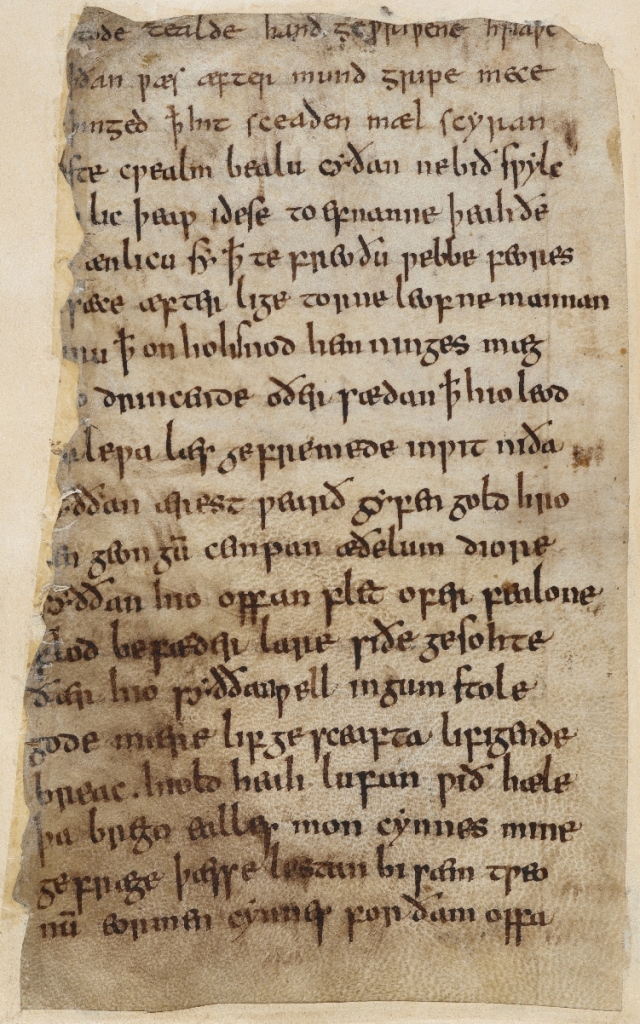 tode tealde hand geƿriþene hraþe
ðan ƿæs æfter mund gripe mece
inged ꝥ hit sceaden mæl scyran
ste cƿealm bealu cyðan ne bið sƿylc
lic þeaƿ idese to efnanne þeah ðe
ænlicu sy ꝥ te freoðu ƿebbe feores
sæce æfter lige torne leofne mannan
ru ꝥ on hohsnod hem ninges mæg
o drincende oðer sædan ꝥ hio leod
leƿa læs gefremede inƿit niða
yððan ærest ƿearð gyfen gold hro
en geon gū cempan æðelum diore
syððan hio offan flet ofer fealone
flod be fæder lare siðe gesohte
ðær hio syððan ƿell in gum stole
gode mære lif ge sceafta lifigende
breac . hiold heah lufan ƿið hæle
þa brego ealles mon cynnes mine
gefræge þæs selestan bi sæm tƿeo
nū eormen cynnes for ðam offa